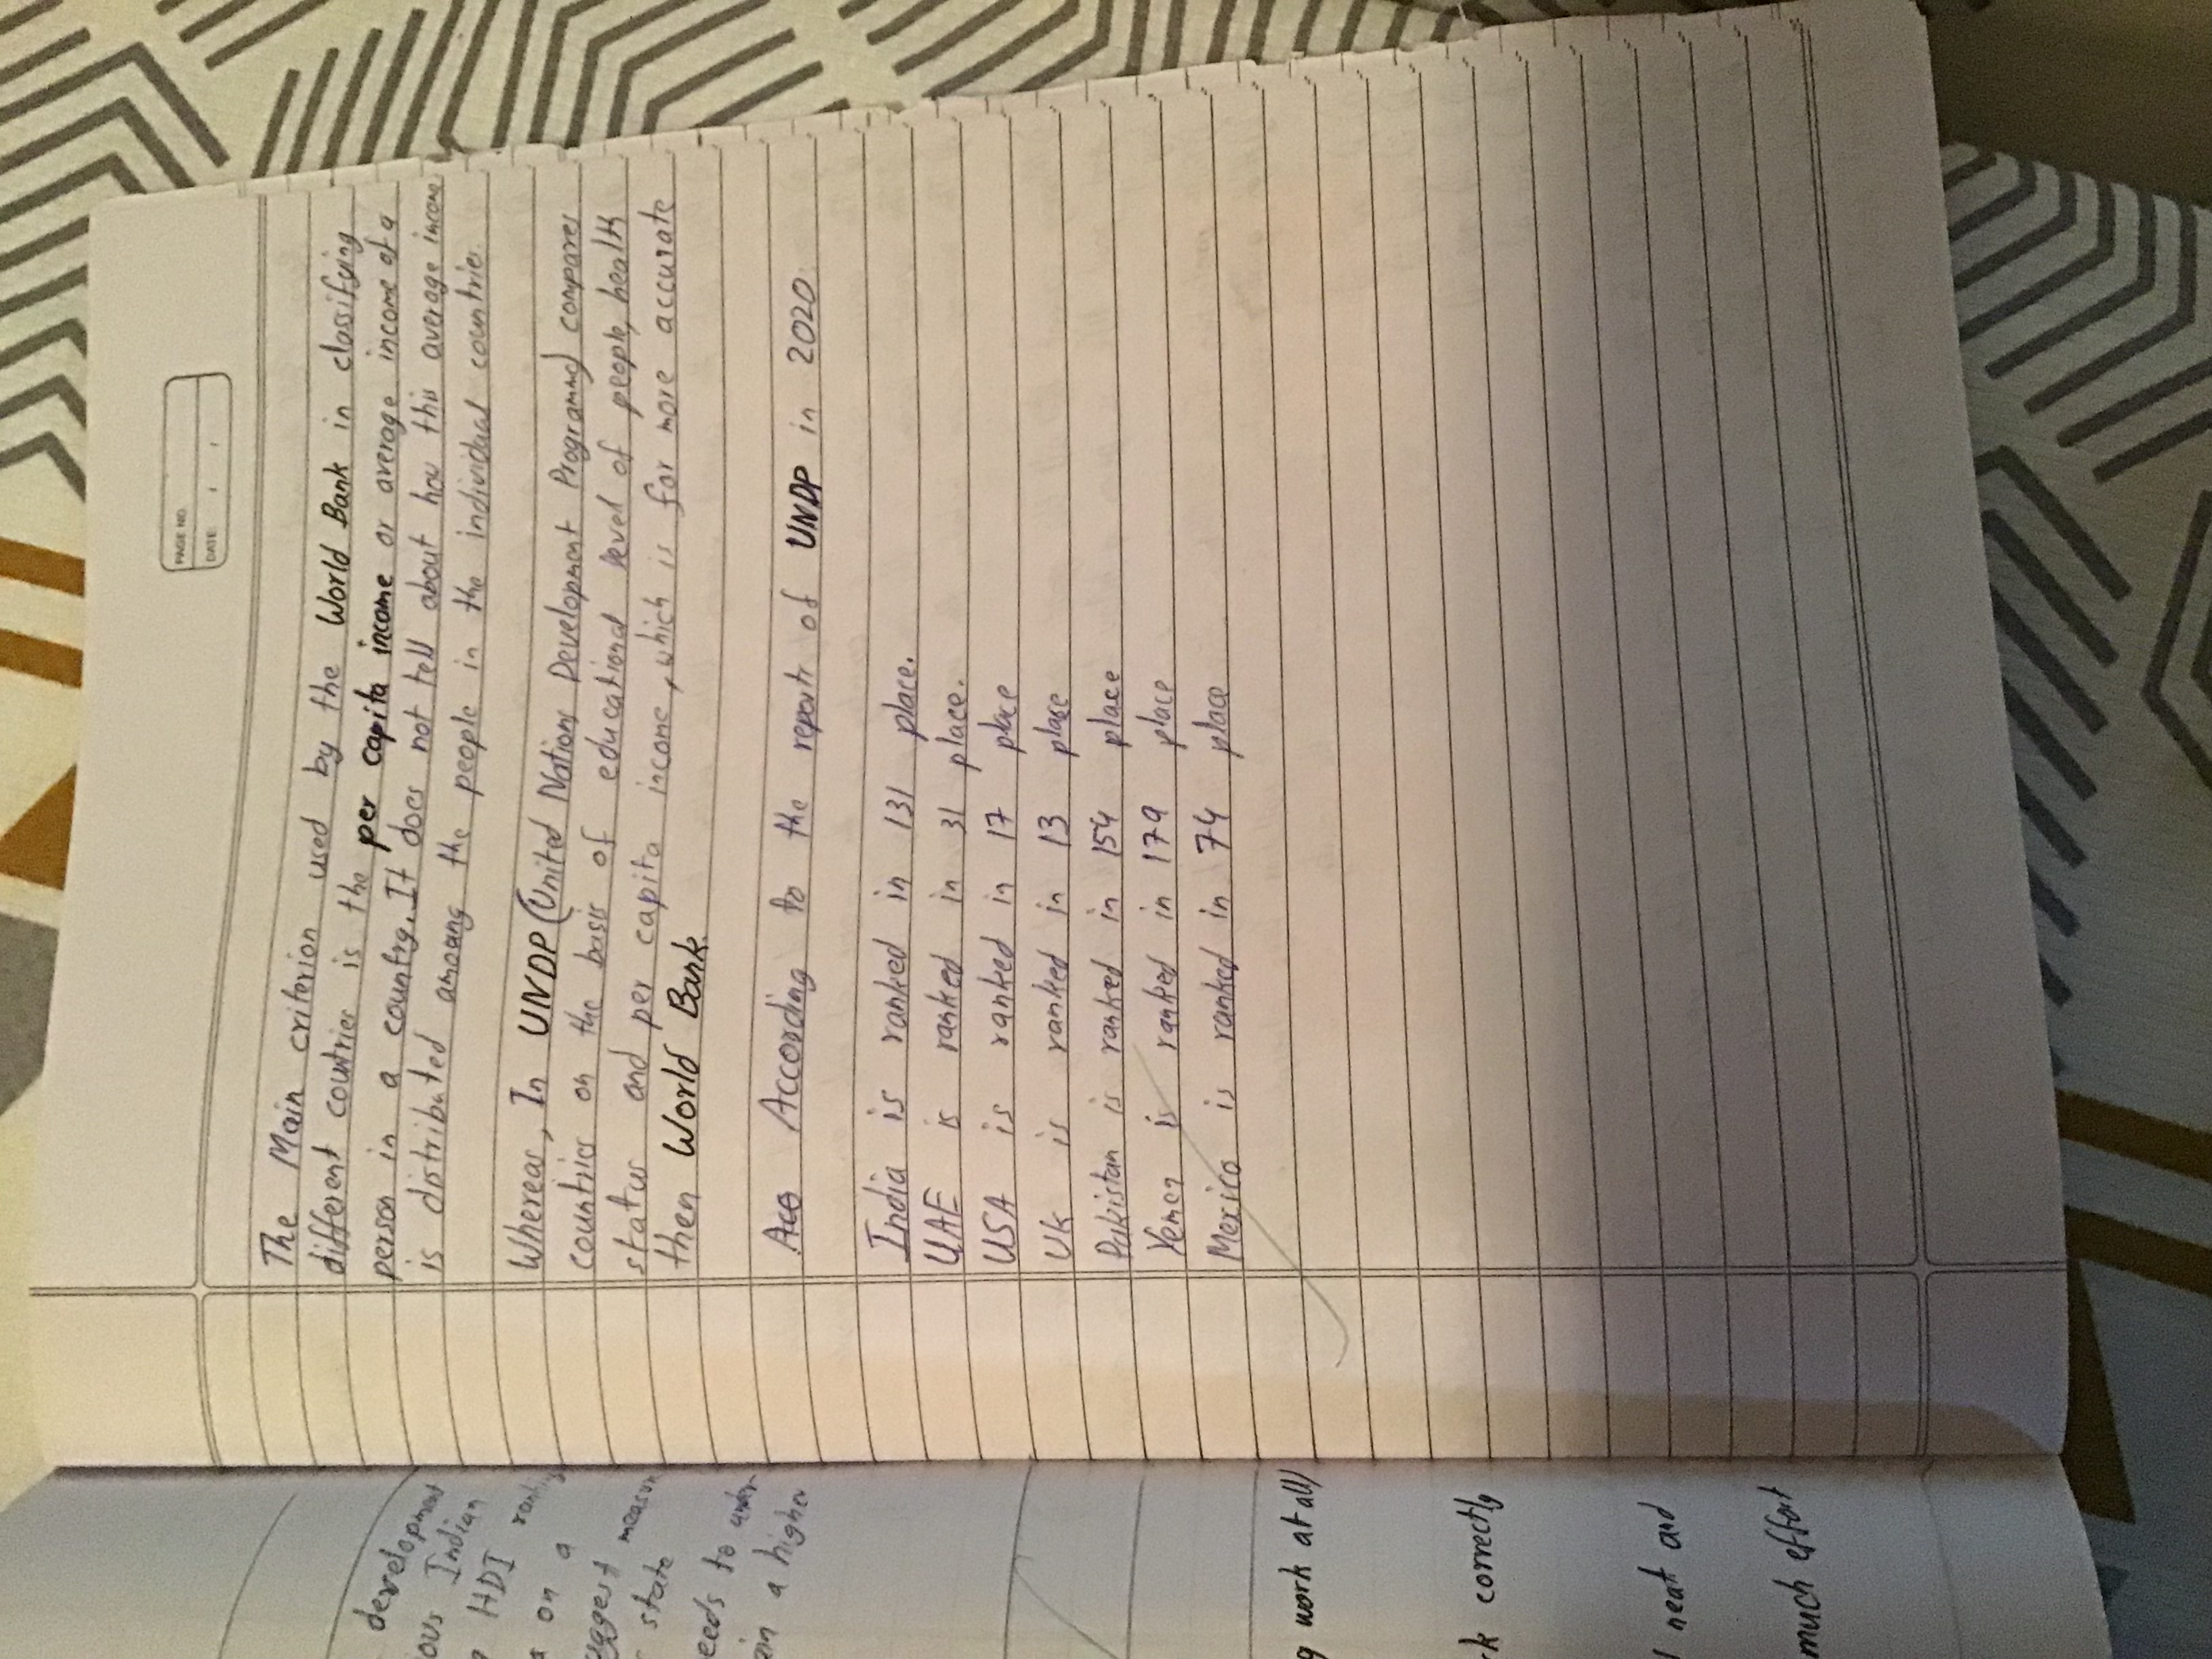 development
ious Indian
HDI ranking
on a
suggest measure
state
needs to under-
a higher
work at all)
correctly
neat and
much effort
PAGE NO.
DATE: / /
The Main criterion used by the World Bank in classifying
different countries is the per capita income or average income of a
person in a country. It does not tell about how this average income
is distributed amoung the people in the individual countrie.
Whereas, In UNDP (United Nations Development Programme) compares
countries on the basis of educational level of people, health
status and per capita income, which is far more accurate
then World Bank.
Aco According to the reports of UNDP in 2020
India is ranked in 131 place.
UAE is ranked in 31 place.
USA is ranked in 17 place
UK is ranked in 13 place
Pakistan is ranked in 154 place
Yemen is ranked in 179 place
Mexico is ranked in 74 place